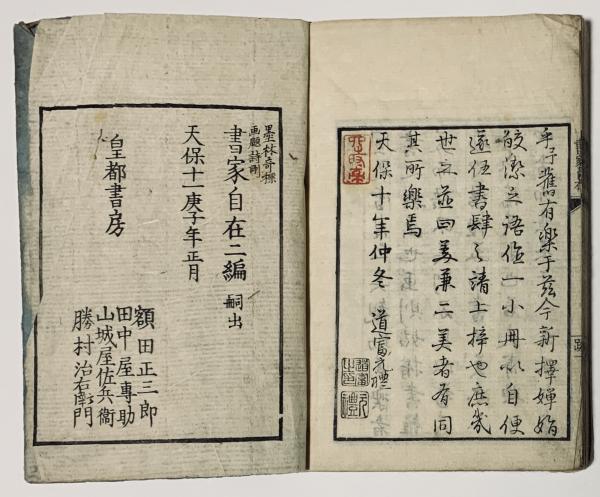 辛子舊有樂于茲今新擇嬋娟
皎潔之語作一小冊以自便
遂任書肆之請上梓也庶幾
世之並曰美兼二美者有同
其所樂焉
天保十年仲冬 道富元禮
墨林奇標
画題詩剛
書家自在二編 嗣出
天保十一庚子年正月
皇都書房
額田正三郎
田中屋專助
山城屋佐兵衞
勝村治右衛門